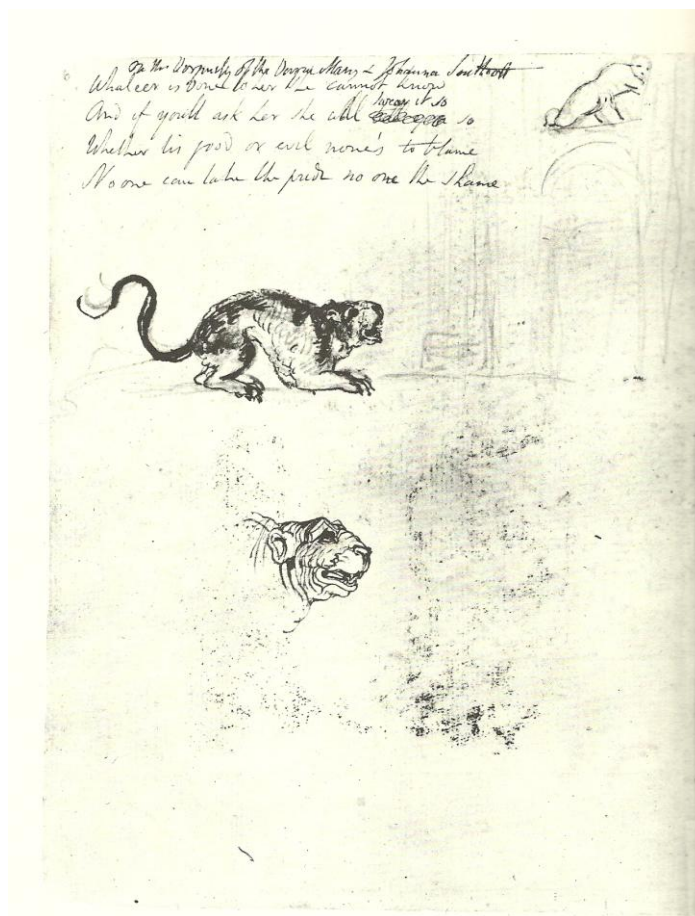 On the Virginity of the Virgin Mary & Johanna Southcott
Whateer is done to her she cannot know
swear it so
And if youll ask her she will so
Whether tis good or evil none's to blame
No one can take the pride no one the shame